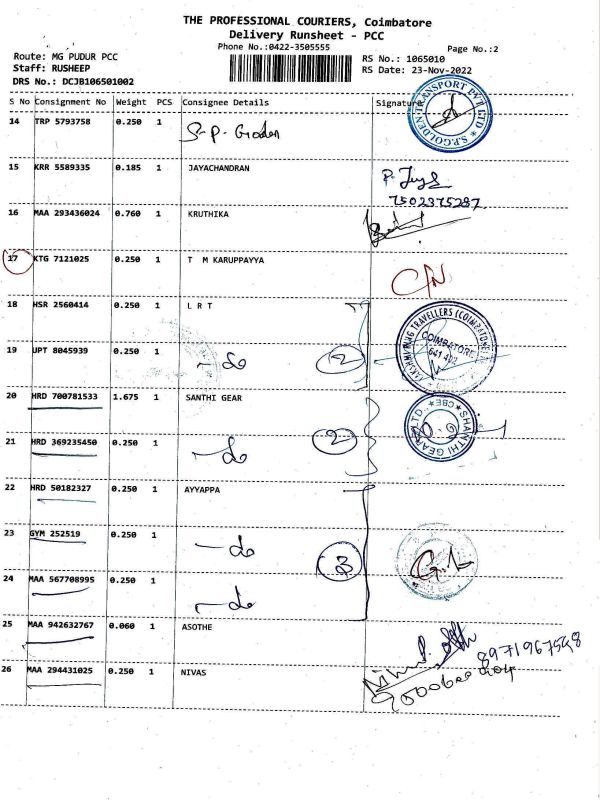 THE PROFESSIONAL COURIERS, Coimbatore
Delivery Runsheet - PCC
Phone No.:0422-3505555
Page No.:2
Route: MG PUDUR PCC
RS No.: 1065010
Staff: RUSHEEP
RS Date: 23-Nov-2022
DRS No.: DCJB106501002
S No Consignment No Weight PCS Consignee Details Signature
14 TRP 5793758 0.250 1 S.P. Golden
S.P.GOLDEN TRANSPORT PVT LTD
15 KRR 5589335 0.185 1 JAYACHANDRAN
7502375287
16 MAA 293436024 0.760 1 KRUTHIKA
17 KTG 7121025 0.250 1 T M KARUPPAYYA
C/N
18 HSR 2560414 0.250 1 L R T
19 UPT 8045939 0.250 1 - do 2
TRAVELLERS (COIMBATORE)
COIMBATORE
641 402
20 HRD 700781533 1.675 1 SANTHI GEAR
21 HRD 369235450 0.250 1 - do 2
SHANTHI GEAR LTD. CBE
22 HRD 50182327 0.250 1 AYYAPPA
23 GYM 252519 0.250 1 - do 3
24 MAA 567708995 0.250 1 - do
25 MAA 942632767 0.060 1 ASOTHE
26 MAA 294431025 0.250 1 NIVAS